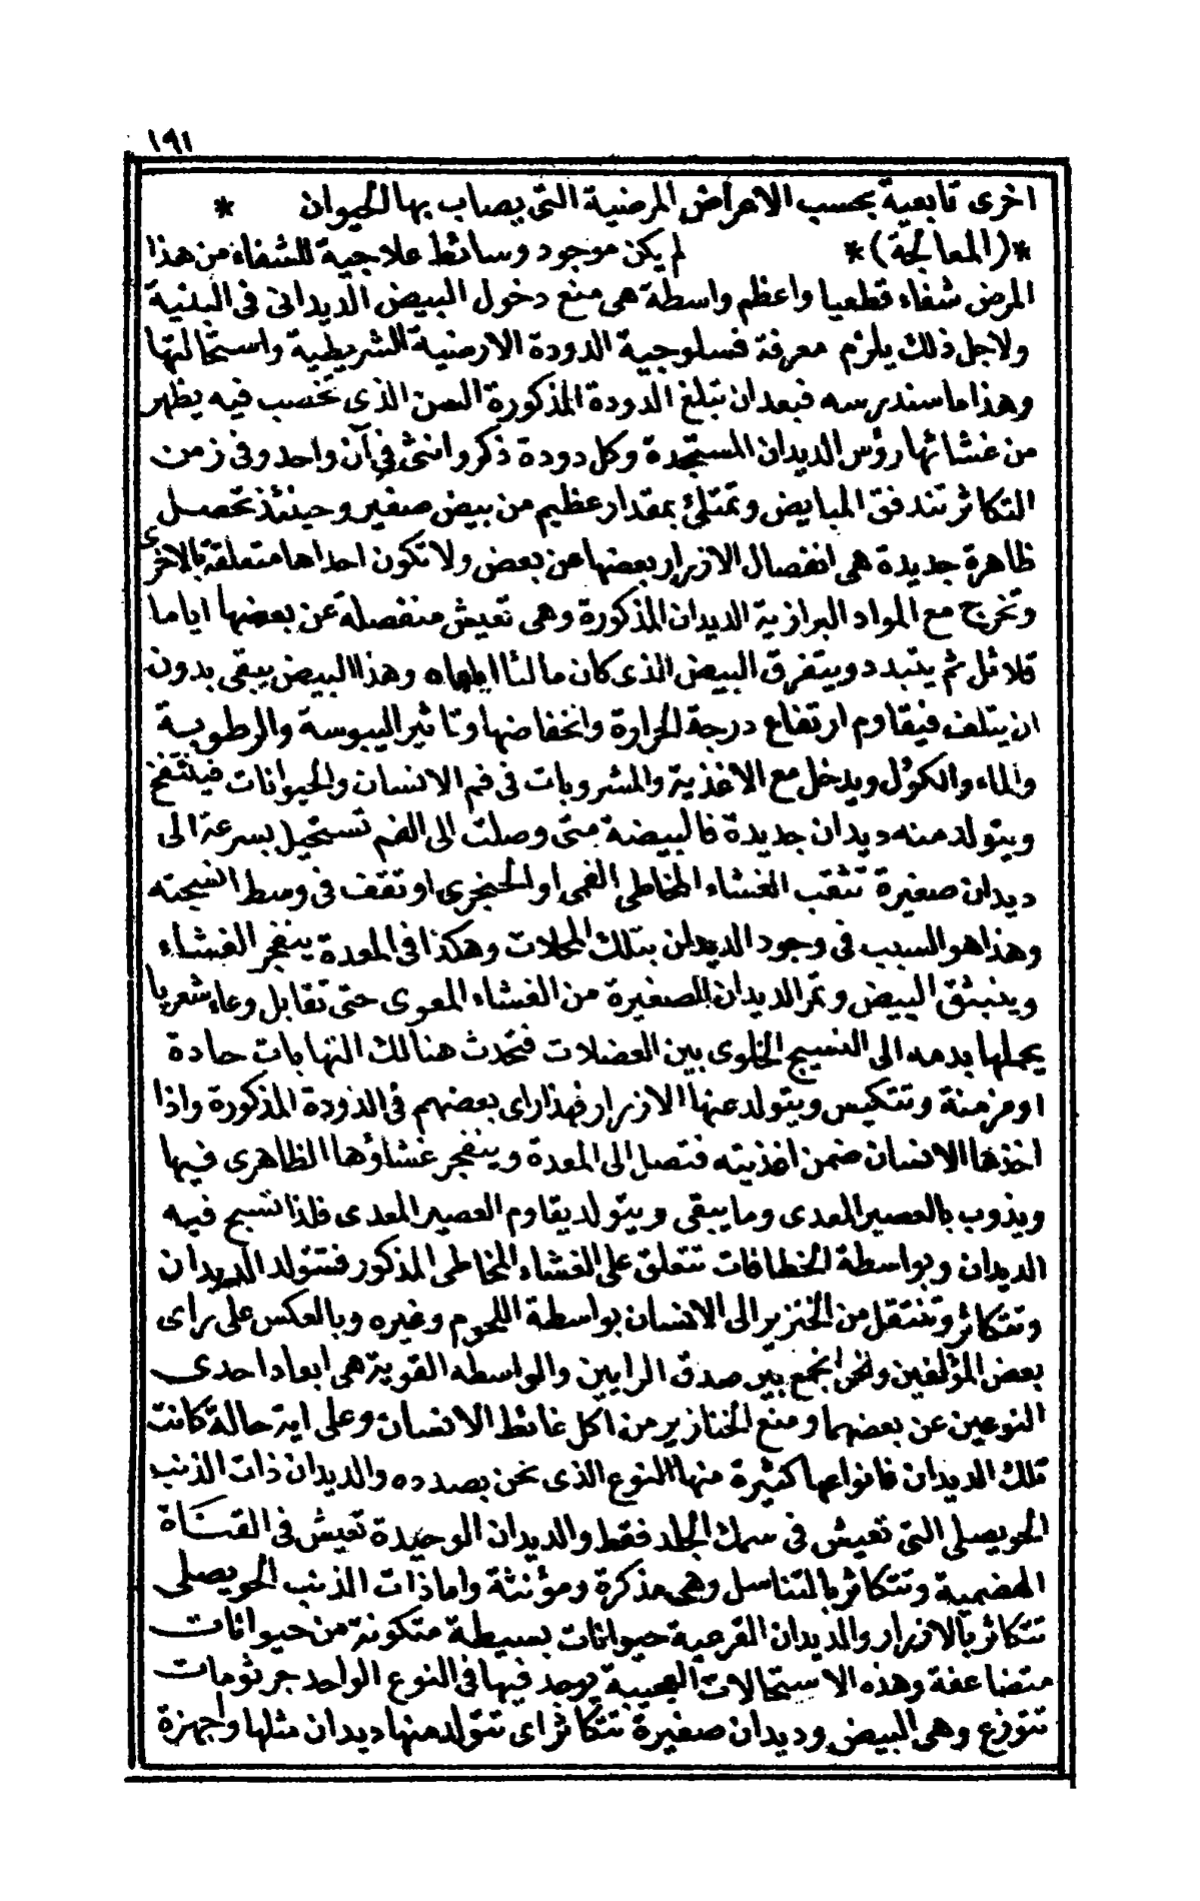 ١٩١
اخرى تابعية بحسب الاعراض المرضية التى يصاب بها الحيوان *
*(المعالجة)* لم يكن موجود وسائط علاجية للشفاء من هذا
المرض شفاء قطعيا واعظم واسطة هى منع دخول البيض الديدانى فى البنية
ولاجل ذلك يلزم معرفة فسلوجية الدودة الارضية الشريطية واستحالتها
وهذا ما سندرسه فبعد ان تبلغ الدودة المذكورة السن الذى تخصب فيه يظهر
من غشائها رؤس الديدان المستجدة وكل دودة ذكر وانثى فى آن واحد وفى زمن
التكاثر تندفق المبايض وتمتلئ بمقدار عظيم من بيض صغير وحينئذ تحصل
ظاهرة جديدة هى انفصال الازرار بعضها عن بعض ولا تكون احداها متعلقة بالاخرى
وتخرج مع المواد البرازية الديدان المذكورة وهى تعيش منفصلة عن بعضها اياما
قلائل ثم يتبدد ويتفرق البيض الذى كان مالئا اياه وهذا البيض يبقى بدون
ان يتلف فيقاوم ارتفاع درجة الحرارة وانخفاضها وتاثير اليبوسة والرطوبة
والماء والكؤل ويدخل مع الاغذية والمشروبات فى فم الانسان والحيوانات فينتفخ
ويتولد منه ديدان جديدة فالبيضة متى وصلت الى الفم تستحيل بسرعة الى
ديدان صغيرة تثقب الغشاء المخاطى الفمى او الحنجرى او تقف فى وسط انسجته
وهذا هو السبب فى وجود الديدان بتلك المحلات وهكذا فى المعدة ينفجر الغشاء
وينبثق البيض وتمر الديدان الصغيرة من الغشاء المعوى حتى تقابل وعاء شعريا
يحملها بدمه الى النسيج الخلوى بين العضلات فتحدث هنالك التهابات حادة
او مزمنة وتتكيس ويتولد عنها الازرار فهذا راى بعضهم فى الدودة المذكورة واذا
اخذها الانسان ضمن اغذيته فتصل الى المعدة وينفجر غشاؤها الظاهرى فيها
ويذوب بالعصير المعدى وما يبقى ويتولد يقاوم العصير المعدى فلذا تسبح فيه
الديدان وبواسطة الخطافات تتعلق على الغشاء المخاطى المذكور فتتولد الديدان
وتتكاثر وتنتقل من الخنزير الى الانسان بواسطة اللحوم وغيره وبالعكس على راى
بعض المؤلفين ونحن نجمع بين صدق الرايين والواسطه القوية هى ابعاد احدى
النوعين عن بعضهما ومنع الخنازير من اكل غائط الانسان وعلى اية حالة كانت
تلك الديدان فانواعها كثيرة منها النوع الذى نحن بصدده والديدان ذات الذنب
الحويصلى التى تعيش فى سمك الجلد فقط والديدان الوحيدة تعيش فى القناة
الهضمية وتتكاثر بالتناسل وهى مذكرة ومؤنثة واما ذات الذنب الحويصلى
تتكاثر بالازرار والديدان القرعية حيوانات بسيطة متكونة من حيوانات
متضاعفة وهذه الاستحالات العجيبة يوجد فيها فى النوع الواحد جرثومات
تتوزع وهى البيض وديدان صغيرة تتكاثر اى تتولد منها ديدان مثلها واجهزة